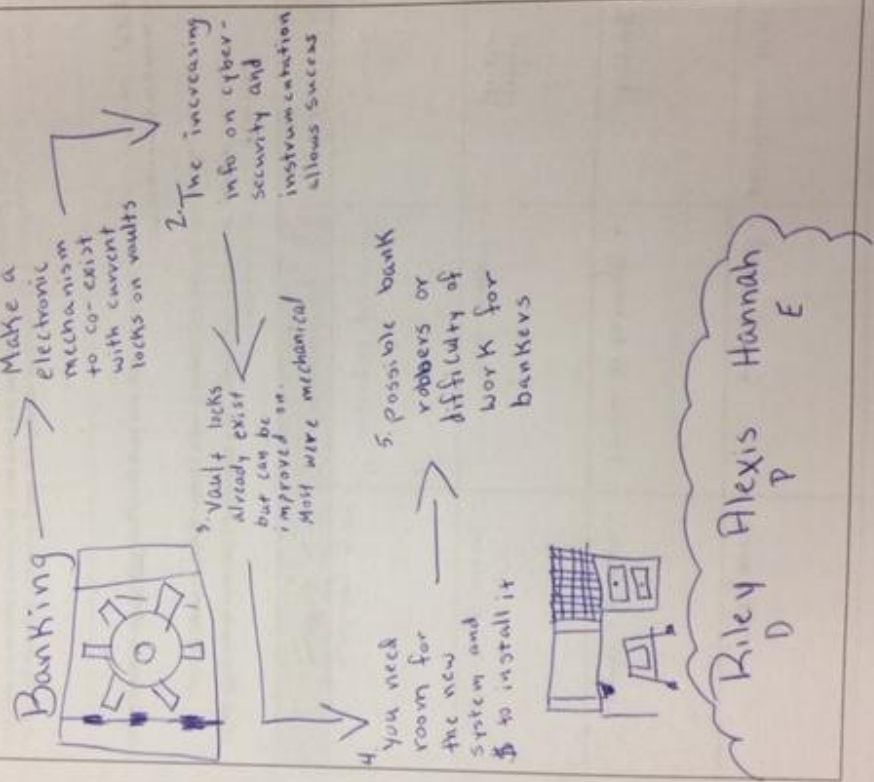 Banking
Make a
electronic
mechanism
to co-exist
with current
locks on vaults
2. The increasing
info on cyber-
security and
instrumentation
allows success
3. Vault locks
already exist
but can be
improved on.
Most were mechanical
4. You need
room for
the new
system and
$ to install it
5. possible bank
robbers or
difficulty of
work for
bankers
Riley Alexis Hannah
D P E